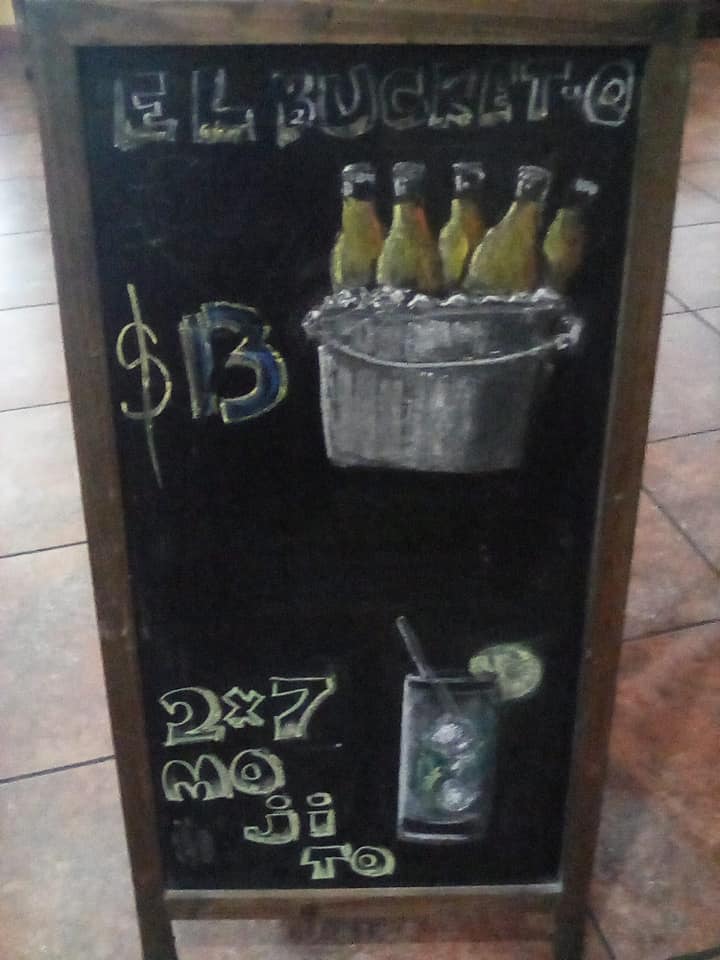 EL BUCKET-O
$13
2x7
MO
ji
TO